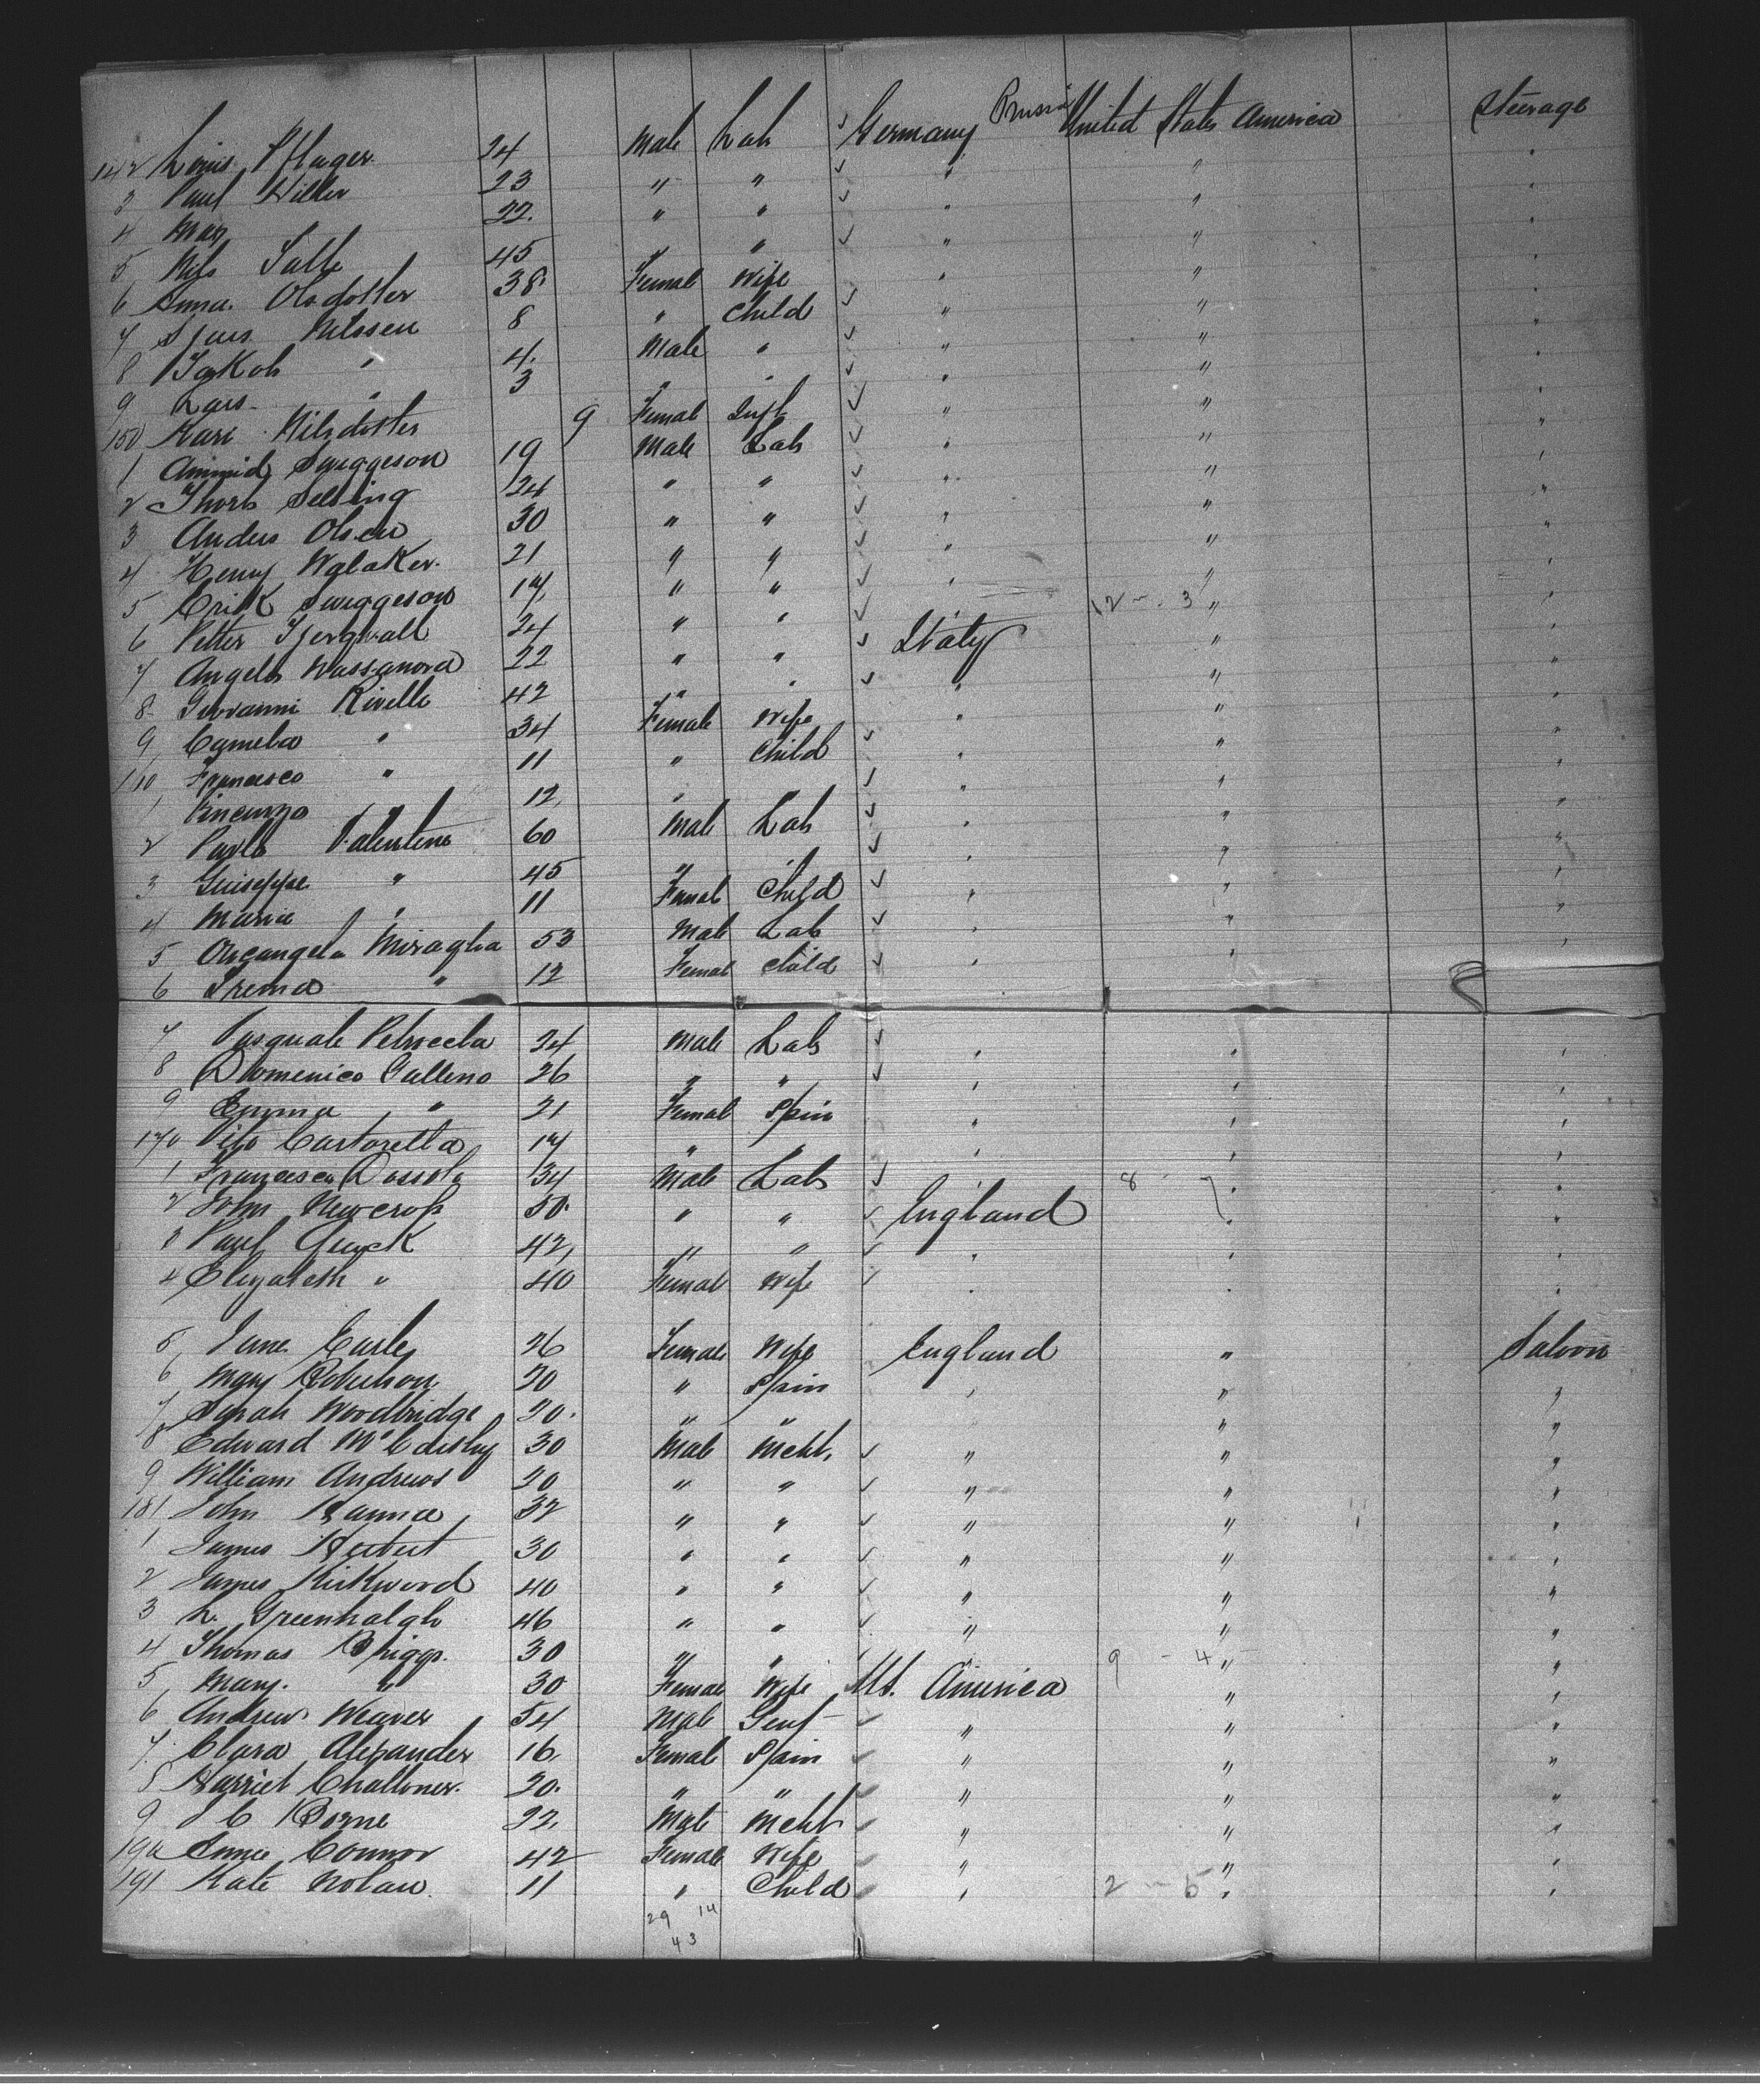 142 Louis Pflager 24 Male Lab Germany Prussia United States America Steerage
3 Paul Willer 23 " " " " "
4 Max 22 " " " " "
5 Nils Salle 45 " " " "
6 Anna Olsdotter 38 Female Wife " " "
7 Nilssen 8 " Child " " "
8 Jakob " 4 Male " " " "
9 Lars " 3 " " " " "
150 Kari Nilsdotter 9 Female Inft " " "
1 Sweggeson 19 Male Lab " " "
2 Thorb Selsing 24 " " " " "
3 Anders Olsen 30 " " " " "
4 Henry Walaker 21 " " " " "
5 Erik Sweggeson 17 " " " " "
6 Petter 24 " " " 12 - 3 " "
7 Angelo Massanova 22 " " Italy " "
8 Giovanni Rivelle 42 " " " " "
9 Camela " 34 Female Wife " " "
160 Francesco " 11 " Child " " "
1 Vincenzo 12 " " " " "
2 Paolo Valentino 60 Male Lab " " "
3 Guiseppe " 45 " " " " "
4 Maria " 11 Female Child " " "
5 Arcangelo Miraglia 53 Male Lab " " "
6 Irena " 12 Female Child " " "
8
7 Pasquale Petrocela 24 Male Lab " " "
8 Domenico Galleno 26 " " " " "
9 Emma " 21 Female Spin " " "
170 Vito Castoretta 17 " " " " "
1 Francesco Dossola 34 Male Lab " 8 - 7 " "
2 John Newcross 30 " " England " "
3 Paul Quack 42 " " " " "
4 Elizabeth " 40 Female Wife " " "
5 Jane Earle 26 Female Wife England " Saloon
6 Mary Robertson 20 " Spin " " "
7 Sarah Woodbridge 20 " " " "
8 Edward McCarthy 30 Male Mcht " " "
9 William Andrews 20 " " " " "
181 John Hannia 32 " " " " "
1 James Herbert 30 " " " " "
2 James Kirkwood 40 " " " " "
3 L. Greenhalgh 46 " " " " "
4 Thomas Briggs 30 " " 9 - 4 " "
5 Mary " 30 Female Wife Ut. America " "
6 Andrew Weaver 54 Male Gent " " "
7 Clara Alexander 16 Female Spin " " "
8 Harriet Challoner 20 " " " " "
9 J C Borne 22 Male Mcht " " "
190 Annie Connor 42 Female Wife " " "
191 Kate Nolan 11 " Child " 2 - 5 " "
29 14
43